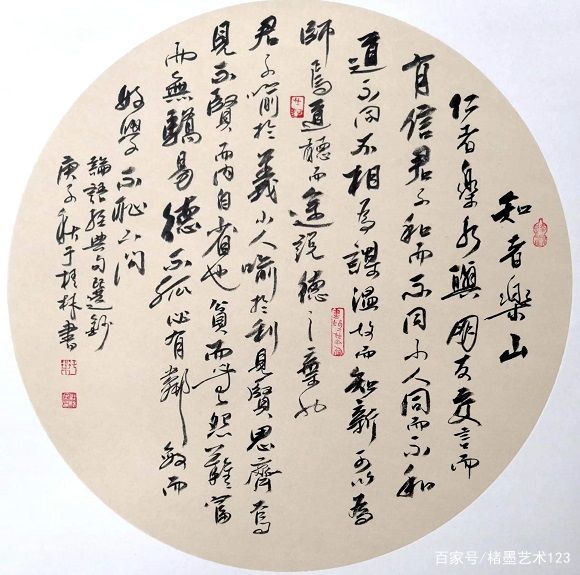 知者樂山
仁者樂水與朋友交言而
有信君子和而不同小人同而不和
道不同不相為謀溫故而知新可以為
師焉道聽而途說德之棄也
君子喻於義小人喻於利見賢思齊焉
見不賢而內自省也貧而无怨難富
而無驕易德不孤必有鄰敏而
好學不恥下問
論語經典句選鈔
庚子秋于桂林書
百家号/楮墨艺术123